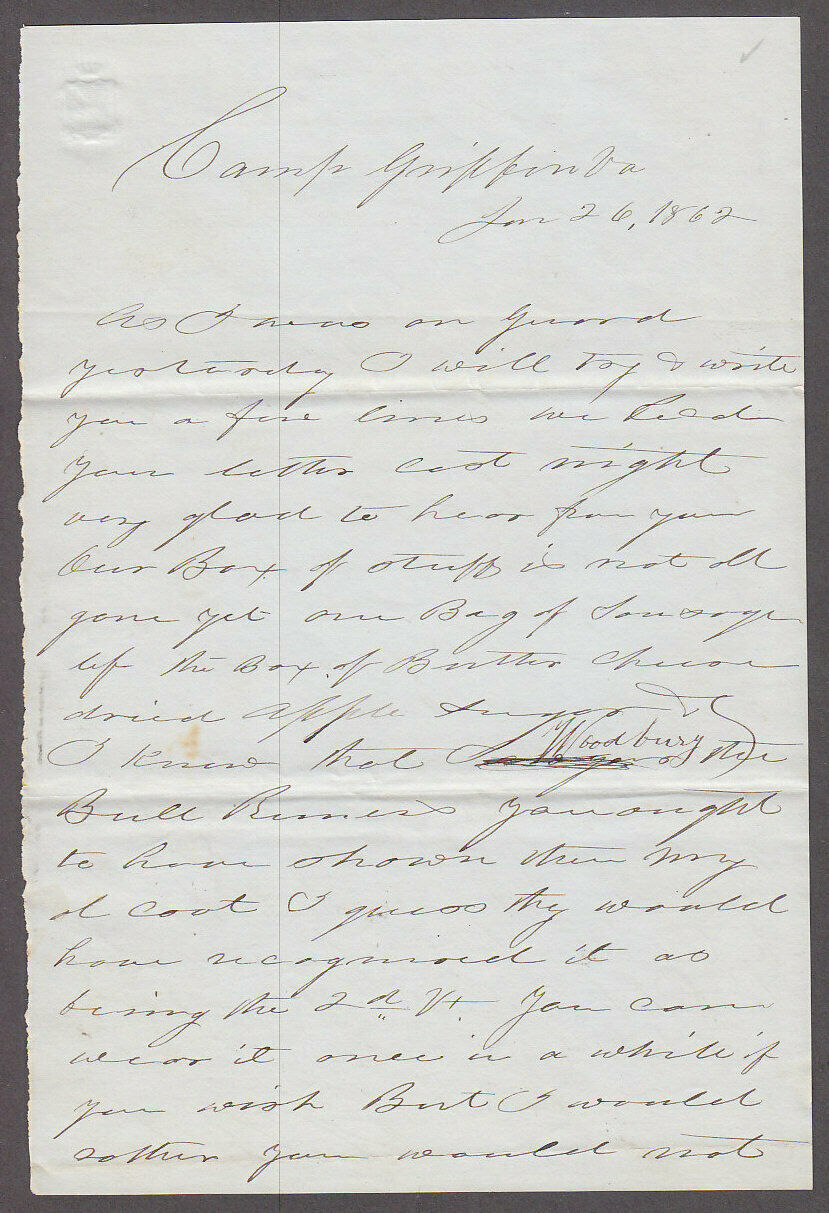 Camp Griffin Va
Jan 26, 1862
As I was on Guard
yesterday I will try & write
you a few lines we Recd
your letter last night
very glad to hear from you
Our Box of stuff is not all
gone yet one Bag of Sausage
lef the Box of Butter cheese
dried apple sugar &c
I know that Woodbury the
Bull Runers you ought
to have shown them my
ol coat I guess thy would
have recogmised it as
being the 2d Vt. You can
wear it once in a while if
you wish But I would
rather you would not